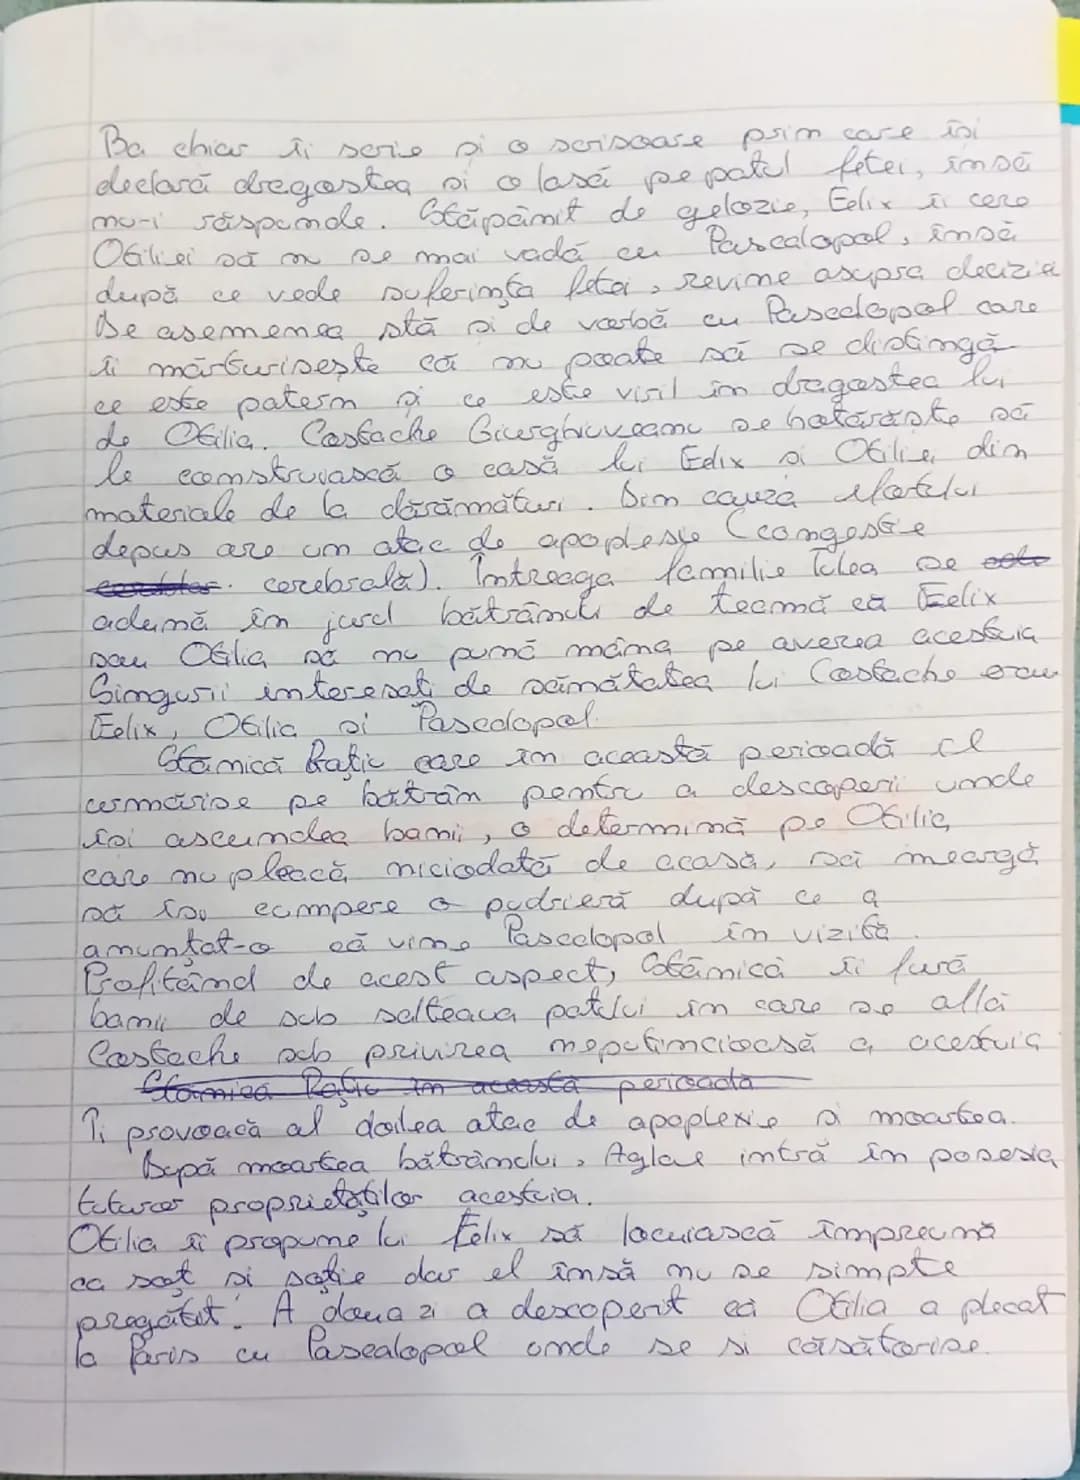 Ba chiar îi scrie și o scrisoare prin care își
declară dragostea și o lasă pe patul fetei, însă
nu-i răspunde. Stăpânit de gelozie, Felix îi cere
Otiliei să nu se mai vadă cu Pascalopol, însă
după ce vede suferința fetei, revine asupra deciziei
De asemenea stă și de vorbă cu Pascalopol care
îi mărturisește că nu poate să se distingă
ce este patern și ce este viril în dragostea lui
de Otilia. Costache Giurgiuveanu se hotărăște să
le construiască o casă lui Felix și Otiliei din
materiale de la dărâmături. Din cauza efortului
depus are un atac de apoplexie (congestie
cerebrală). Întreaga familie Tulea se
adună în jurul bătrânului de teamă că Felix
sau Otilia să nu pună mâna pe averea acestuia
Singurii interesați de sănătatea lui Costache erau
Felix, Otilia și Pascalopol.
Stănică Rațiu care în această perioadă îl
urmărise pe bătrân pentru a descoperi unde
își ascundea banii, o determină pe Otilia,
care nu pleacă niciodată de acasă, să meargă
să își cumpere o pudrieră după ce a
anunțat-o că vine Pascalopol în vizită.
Profitând de acest aspect, Stănică îi fură
banii de sub salteaua patului în care se află
Costache sub privirea neputincioasă a acestuia
Stănică Rațiu în această perioadă
Îi provoacă al doilea atac de apoplexie și moartea.
După moartea bătrânului, Aglae intră în posesia
tuturor proprietăților acestuia.
Otilia îi propune lui Felix să locuiască împreună
ca soț și soție dar el însă nu se simpte
pregătit. A doua zi a descoperit că Otilia a plecat
la Paris cu Pascalopol unde se și căsătorise.